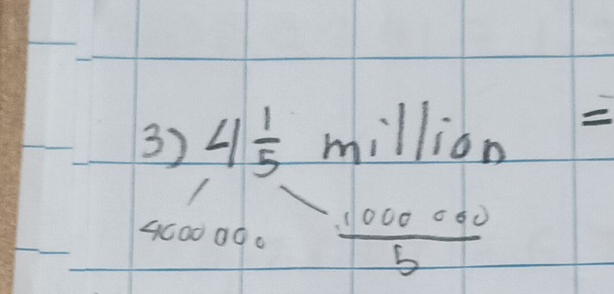 3) 4 1/5 million =
4000 000 1000 000/5